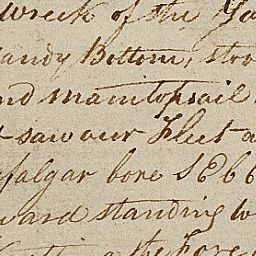 wreck of the Ya
andy Bottom, stro
nd maintopsail
saw our Fleet a
falgar bore SE 6 6
ward standing w
the Fore